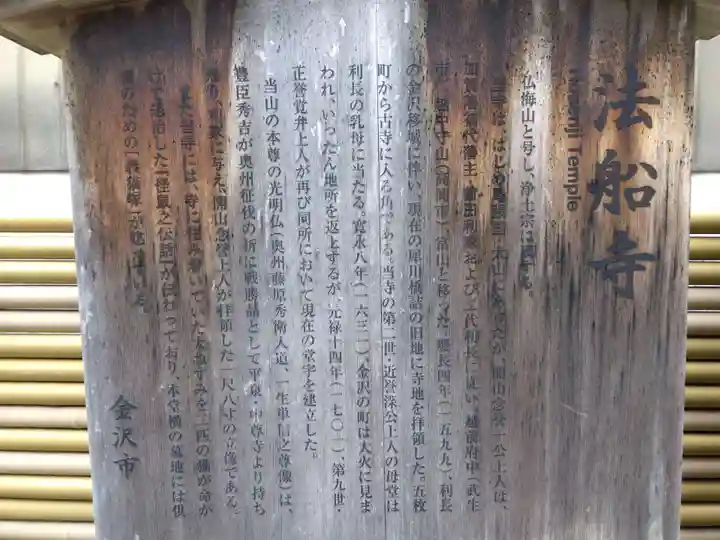 法船寺
Hosenji Temple
仏海山と号し、浄土宗に属する。
当寺は、はじめ尾張国犬山にあったが、開山念誉一公上人は、
加賀藩初代藩主・前田利家および二代利長に従い、越前府中(武生
市)、越中守山(高岡市)、富山と移った。慶長四年(一五九九)、利長
の金沢移城に伴い、現在の犀川橋詰の旧地に寺地を拝領した。五枚
町から古寺に入る角である。当寺の第二世・近誉深公上人の母堂は
利長の乳母に当たる。寛永八年(一六三一)、金沢の町は大火に見ま
われ、いったん地所を返上するが、元禄十四年(一七〇一)、第九世・
正誉覚弁上人が再び同所において現在の堂宇を建立した。
当山の本尊の光明仏(奥州藤原秀衡入道、一生単信之尊像)は、
豊臣秀吉が奥州征伐の折に戦勝品として平泉・中尊寺より持ち
帰り、利家に与え、開山念誉上人が拝領した一尺八寸の立像である。
又、当寺には、寺に住み着いていた大ねずみを二匹の猫が命が
けで退治した「怪鼠之伝話」が伝わっており、本堂横の墓地には倶
養のための「義猫塚」が建っている。
金沢市